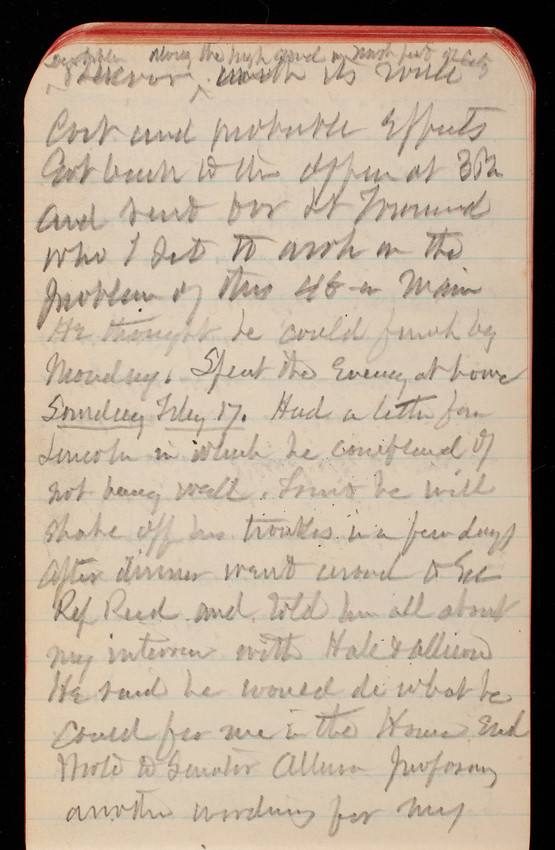 along the high ground in north part of City
with its
Cost and probable Effects
Got back to the office at 3 Pm
and sent for Lt Townsend
who I set to work on the
problem of this 48 in Main
He thought he could finish by
Monday. Spent the Evening at home
Sunday Feby 17. Had a letter from
Lincoln in which he complained of
not being well. Trust he will
shake off his troubles in a few days
After dinner went around to See
Rep Reed and told him all about
my interview with Hale & Allison
He said he would do what he
could for me in the House and
Wrote to Senator Allison proposing
another wording for my